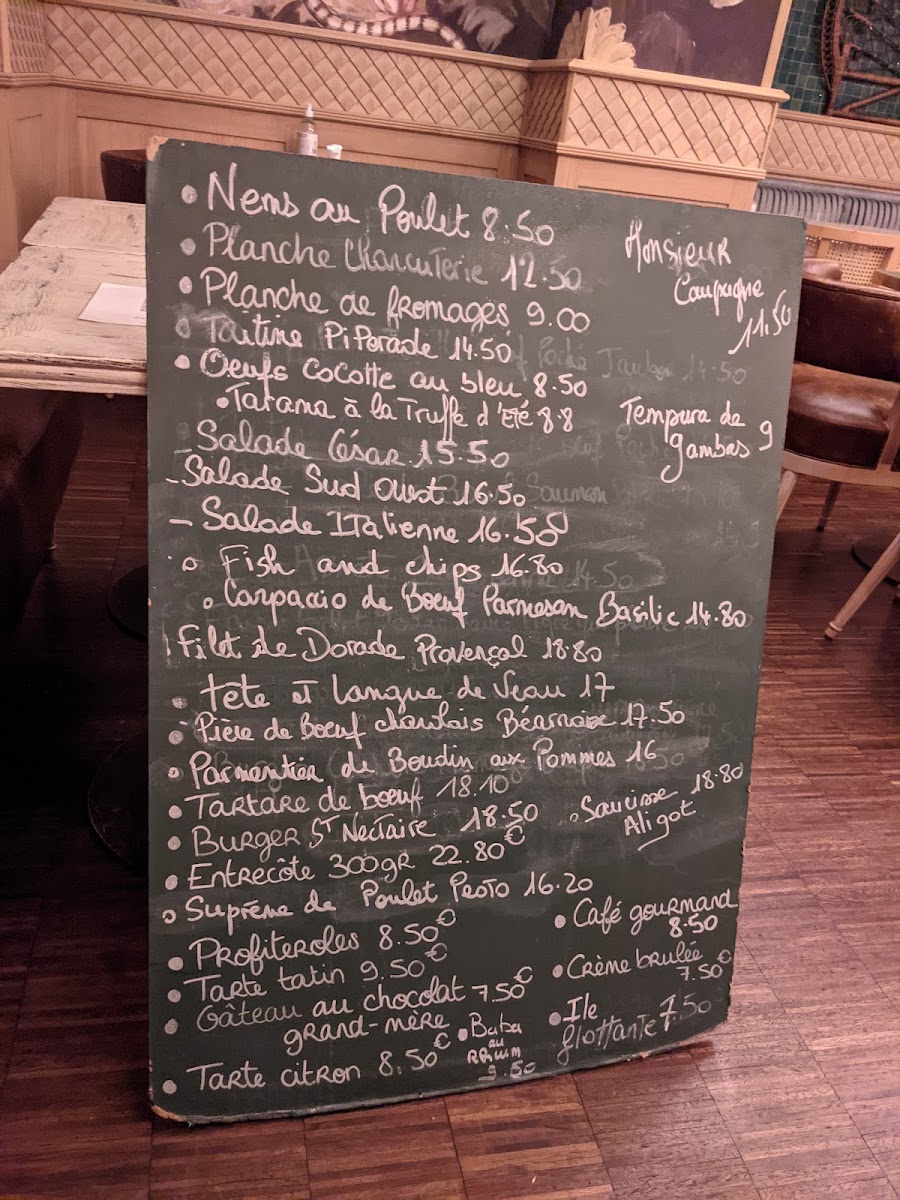 • Nems au Poulet 8.50
• Planche Charcuterie 12.50
• Planche de fromages 9.00
• Tartine PiPerade 14.50
• Oeufs cocotte au bleu 8.50
• Tarama à la Truffe d'Eté 8.8
Salade César 15.50
- Salade Sud Ouest 16.50
- Salade Italienne 16.50
• Fish and chips 16.80
• Carpaccio de Boeuf Parmesan Basilic 14.80
Filet de Dorade Provençal 18.80
• Tête et Langue de Veau 17
• Pièce de Boeuf charolais Béarnaise 17.50
• Parmentier de Boudin aux Pommes 16
• Tartare de boeuf 18.10
• Burger St Nectaire 18.50
• Entrecôte 300gr 22.80€
• Suprême de Poulet Pesto 16.20
• Profiteroles 8.50€
• Tarte tatin 9.50€
• Gâteau au chocolat 7.50€
grand-mère
• Tarte citron 8.50€
• Baba
au
Rhum
9.50
Monsieur
Campagne
11.50
Tempura de
gambas 9
• Saucisse 18.80
Aligot
• Café gourmand
8.50
• Crème brulée
7.50€
• Ile
flottante 7.50